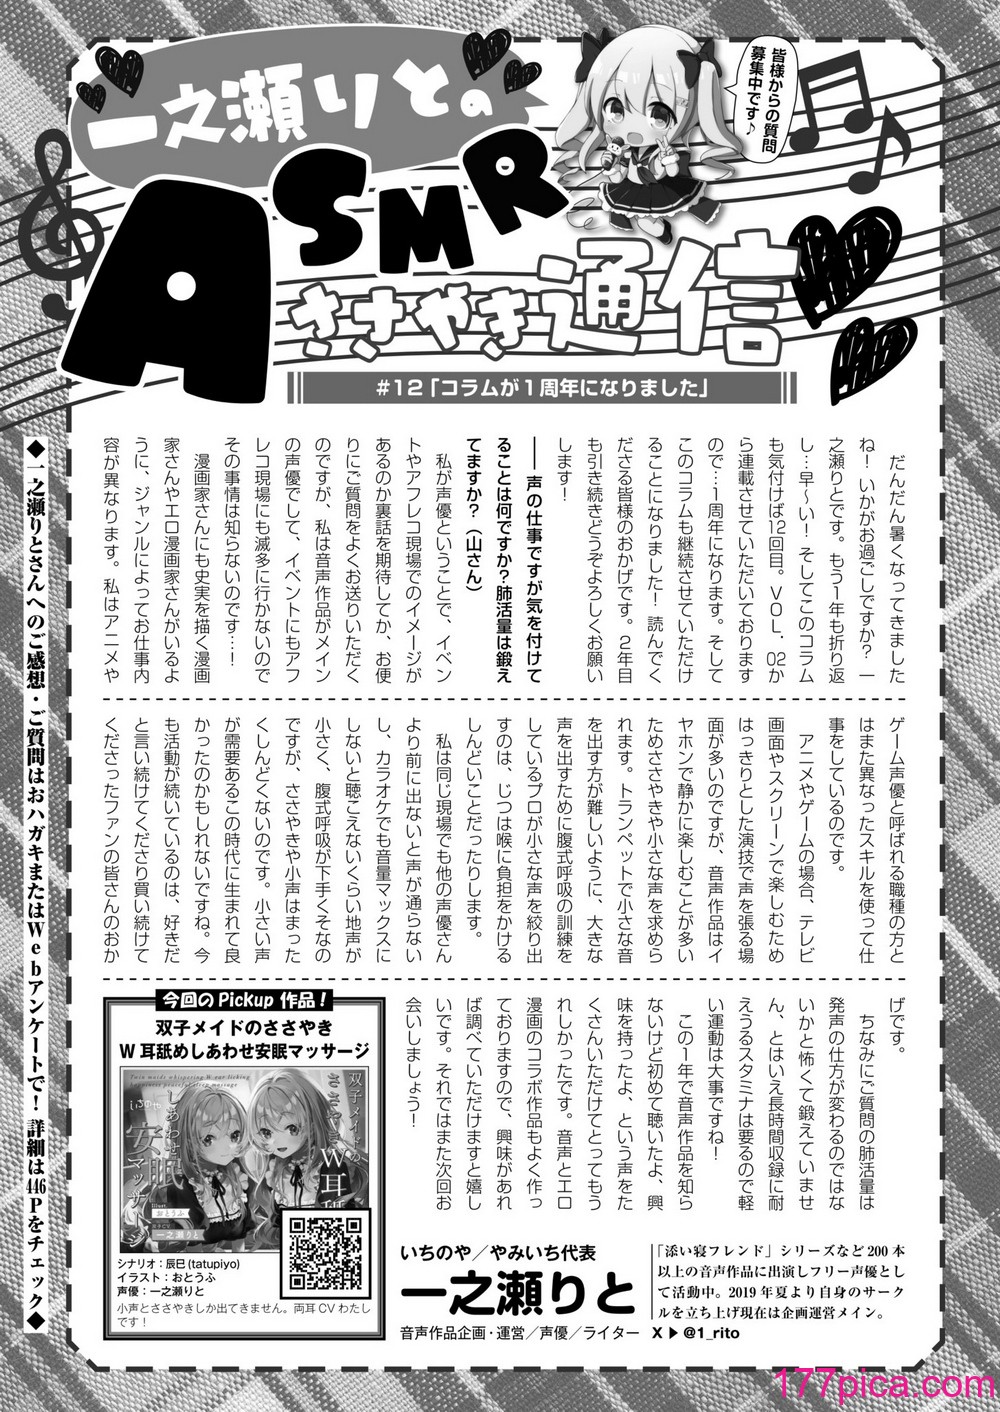 一之瀬りとの
ASMR
ささやき通信
皆様からの質問
募集中です♪
#12「コラムが1周年になりました」
だんだん暑くなってきました
ね！いかがお過ごしですか？一
之瀬りとです。もう1年も折り返
し…早〜い！そしてこのコラム
も気付けば12回目。VOL．02か
ら連載させていただいております
ので…1周年になります。そして
このコラムも継続させていただけ
ることになりました！読んでく
ださる皆様のおかげです。2年目
も引き続きどうぞよろしくお願い
します！
――声の仕事ですが気を付けて
ることは何ですか？肺活量は鍛え
てますか？（山さん）
私が声優ということで、イベン
トやアフレコ現場でのイメージが
あるのか裏話を期待してか、お便
りにご質問をよくお送りいただく
のですが、私は音声作品がメイン
の声優でして、イベントにもアフ
レコ現場にも滅多に行かないので
その事情は知らないのです…！
漫画家さんにも史実を描く漫画
家さんやエロ漫画家さんがいるよ
うに、ジャンルによってお仕事内
容が異なります。私はアニメや
ゲーム声優と呼ばれる職種の方と
はまた異なったスキルを使って仕
事をしているのです。
アニメやゲームの場合、テレビ
画面やスクリーンで楽しむため
はっきりとした演技で声を張る場
面が多いのですが、音声作品はイ
ヤホンで静かに楽しむことが多い
ためささやきや小さな声を求めら
れます。トランペットで小さな音
を出す方が難しいように、大きな
声を出すために腹式呼吸の訓練を
しているプロが小さな声を絞り出
すのは、じつは喉に負担をかける
しんどいことだったりします。
私は同じ現場でも他の声優さん
より前に出ないと声が通らない
し、カラオケでも音量マックスに
しないと聴こえないくらい地声が
小さく、腹式呼吸が下手くそなの
ですが、ささやきや小声はまった
くしんどくないのです。小さい声
が需要あるこの時代に生まれて良
かったのかもしれないですね。今
も活動が続いているのは、好きだ
と言い続けてくださり買い続けて
くださったファンの皆さんのおか
げです。
ちなみにご質問の肺活量は
発声の仕方が変わるのではな
いかと怖くて鍛えていませ
ん、とはいえ長時間収録に耐
えうるスタミナは要るので軽
い運動は大事ですね！
この1年で音声作品を知ら
ないけど初めて聴いたよ、興
味を持ったよ、という声をた
くさんいただけてとってもう
れしかったです。音声とエロ
漫画のコラボ作品もよく作っ
ておりますので、興味があれ
ば調べていただけますと嬉し
いです。それではまた次回お
会いしましょう！
今回のPickup作品！
双子メイドのささやき
W耳舐めしあわせ安眠マッサージ
Twin maids whispering W ear licking
happiness peaceful sleep massage
双子メイドの
ささやきW耳舐め
しあわせ
安眠
マッサージ
いちのや
Illust
おとうふ
一之瀬りと
シナリオ：辰巳(tatupiyo)
イラスト：おとうふ
声優：一之瀬りと
小声とささやきしか出てきません。両耳CVわたし
です！
いちのや／やみいち代表
一之瀬りと
音声作品企画・運営／声優／ライター
「添い寝フレンド」シリーズなど200本
以上の音声作品に出演しフリー声優とし
て活動中。2019年夏より自身のサーク
ルを立ち上げ現在は企画運営メイン。
X▶@1_rito
◆一之瀬りとさんへのご感想・ご質問はおハガキまたはWebアンケートで！詳細は446Pをチェック◆
177pica.com